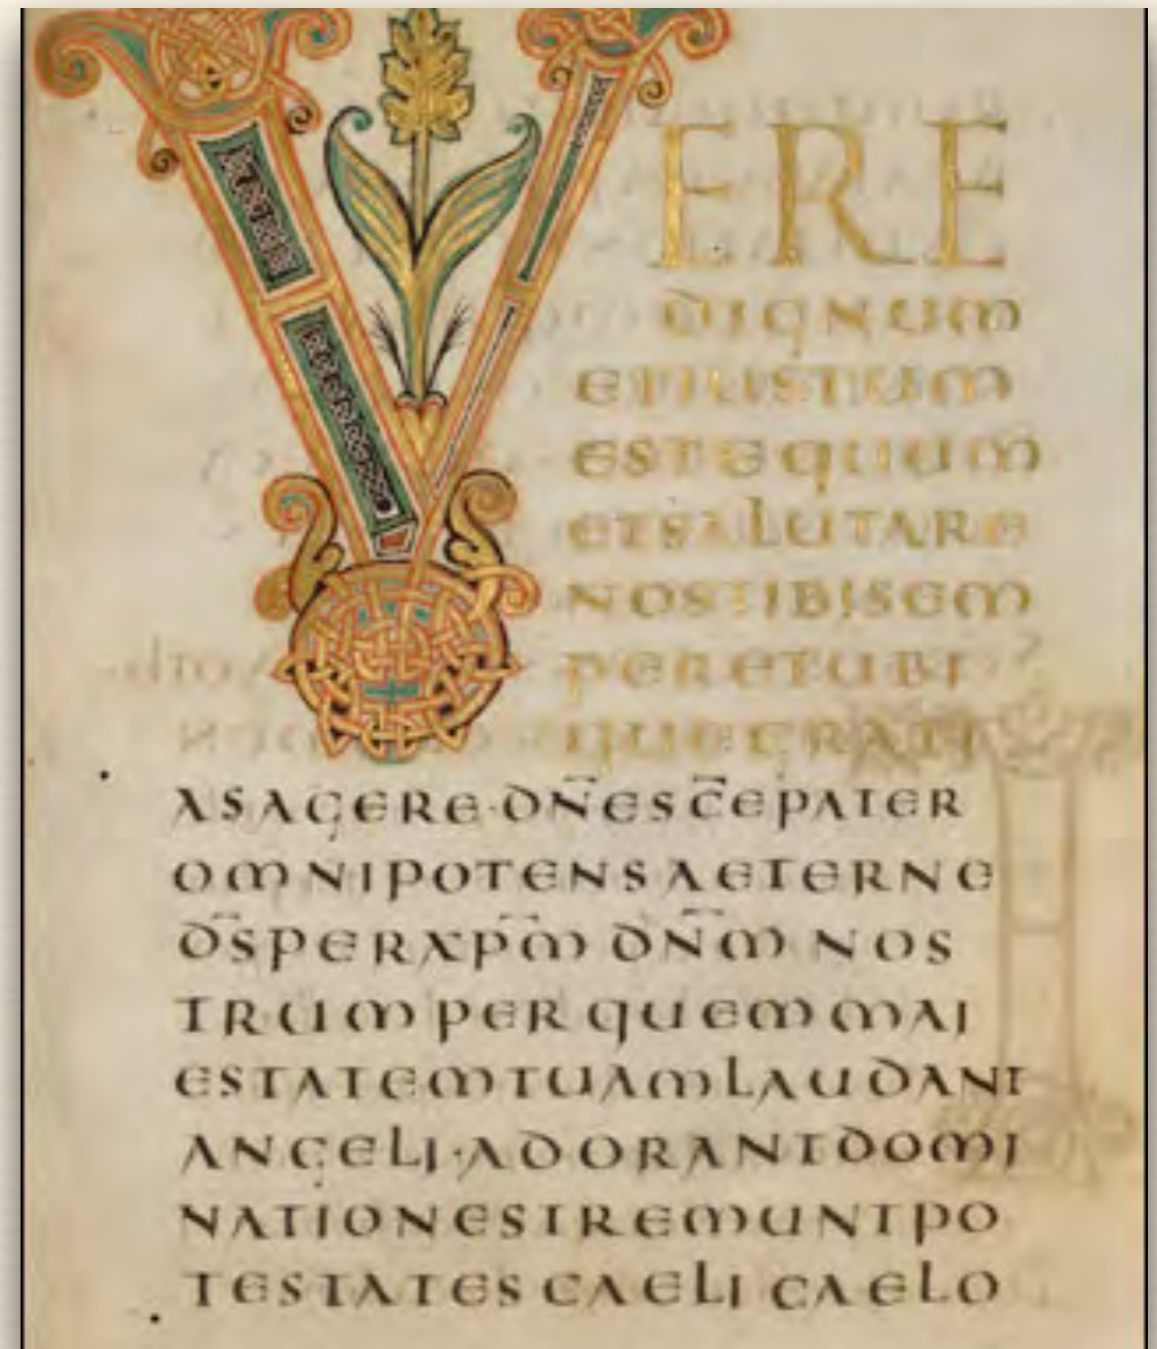 VERE
DIGNUM
ETIUSTUM
ESTEQUUM
ETSALUTARE
NOSTIBISEM
PERETUBI
QUEGRATI
ASAGERE·DN̄ESC̄EPATER
OMNIPOTENSAETERNE
DS̄PERXPM̄ DN̄M NOS
TRUMPERQUEMMAI
ESTATEMTUAMLAUDANT
ANGELI·ADORANTDOMI
NATIONESTREMUNTPO
TESTATESCAELI CAELO